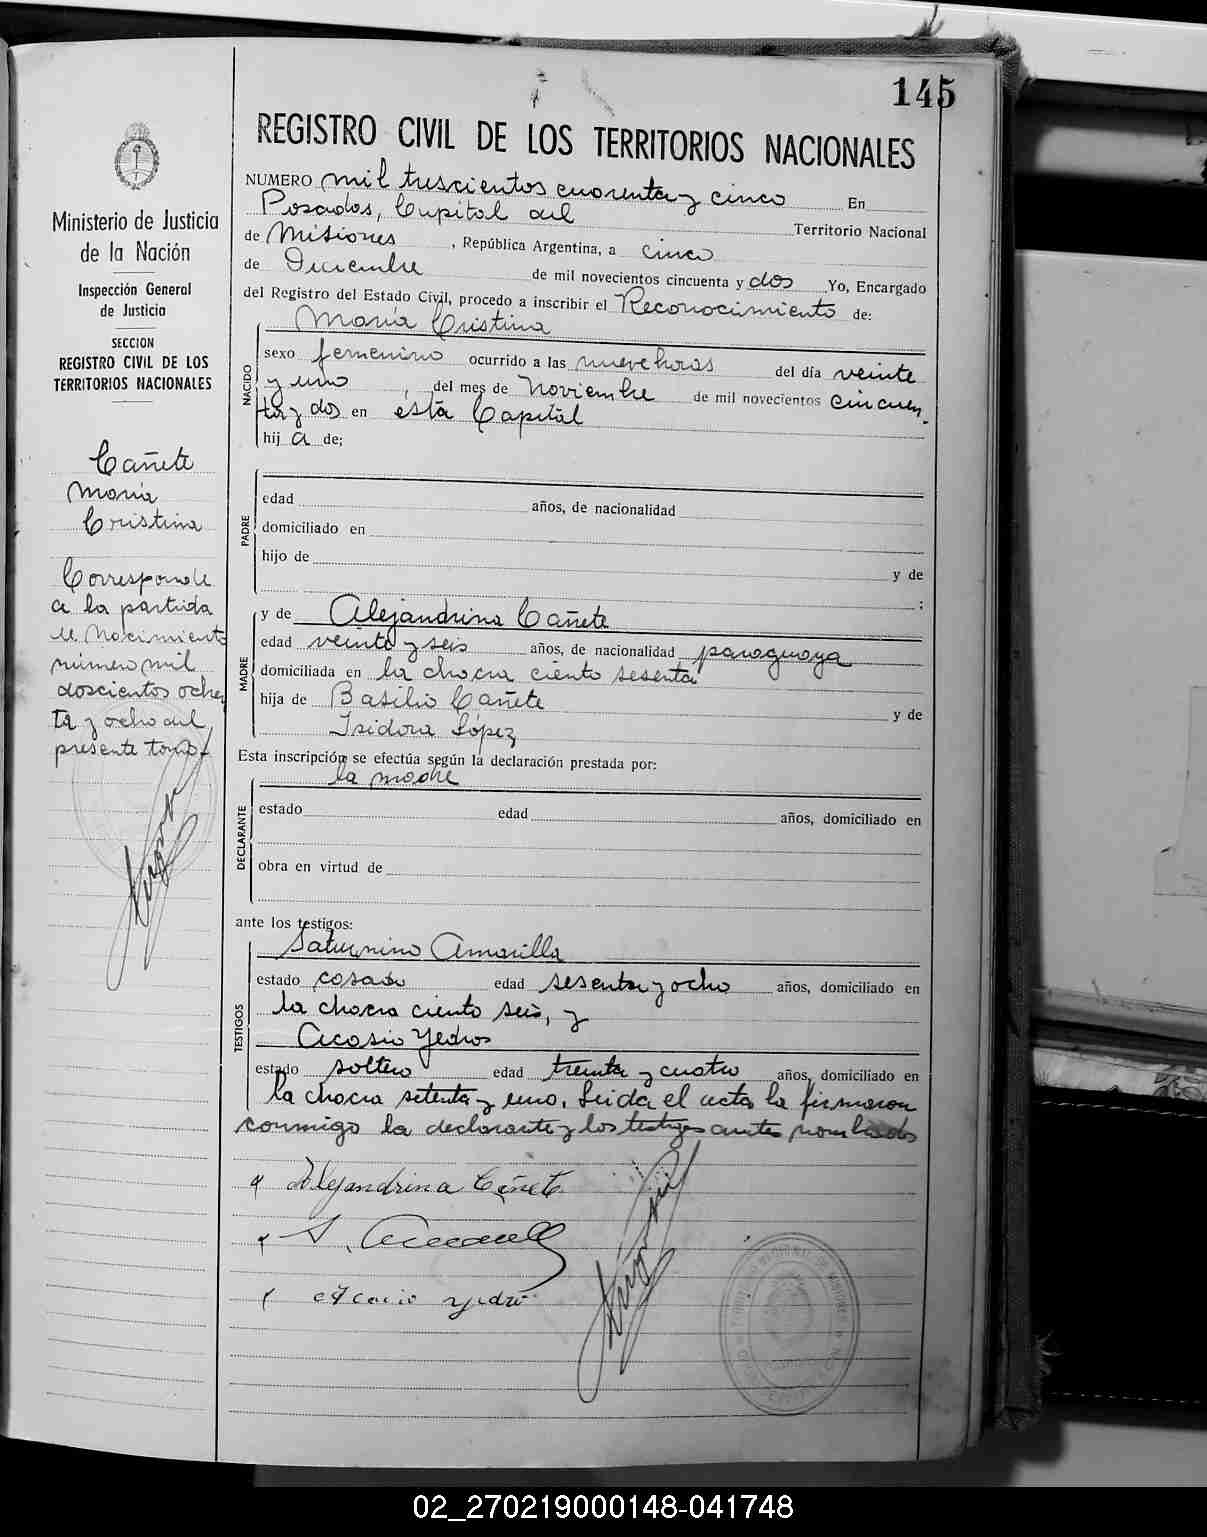 145
REGISTRO CIVIL DE LOS TERRITORIOS NACIONALES
NUMERO mil trescientos cuarenta y cinco En
Posadas, Capital del Territorio Nacional
de Misiones, República Argentina, a cinco
de Diciembre de mil novecientos cincuenta y dos Yo, Encargado
del Registro del Estado Civil, procedo a inscribir el Reconocimiento de:
María Cristina
NACIDO
sexo femenino ocurrido a las nueve horas del día veinte
y uno, del mes de Noviembre de mil novecientos cincuen-
ta y dos en ésta Capital
hij a de;
PADRE
edad años, de nacionalidad
domiciliado en
hijo de y de
;
MADRE
y de Alejandrina Cañete
edad veinte y seis años, de nacionalidad paraguaya
domiciliada en la chacra ciento sesenta
hija de Basilio Cañete y de
Isidora López
Esta inscripción se efectúa según la declaración prestada por:
la madre
DECLARANTE
estado edad años, domiciliado en
obra en virtud de
ante los testigos:
TESTIGOS
Saturnino Amarilla
estado casado edad sesenta y ocho años, domiciliado en
la chacra ciento seis, y
Acasio Yedros
estado soltero edad treinta y cuatro años, domiciliado en
la chacra setenta y uno. Leida el acta la firmaron
conmigo la declarante y los testigos antes nombrados
Alejandrina Cañete
Ministerio de Justicia
de la Nación
Inspección General
de Justicia
SECCION
REGISTRO CIVIL DE LOS
TERRITORIOS NACIONALES
Cañete
María
Cristina
Corresponde
a la partida
de Nacimiento
número mil
doscientos ochen
ta y ocho del
presente tomo
02_270219000148-041748